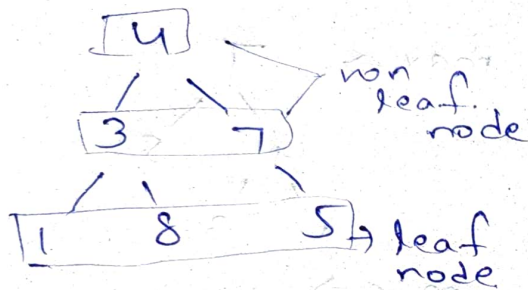 4
non
leaf.
node
3 7
1 8 5 → leaf
node